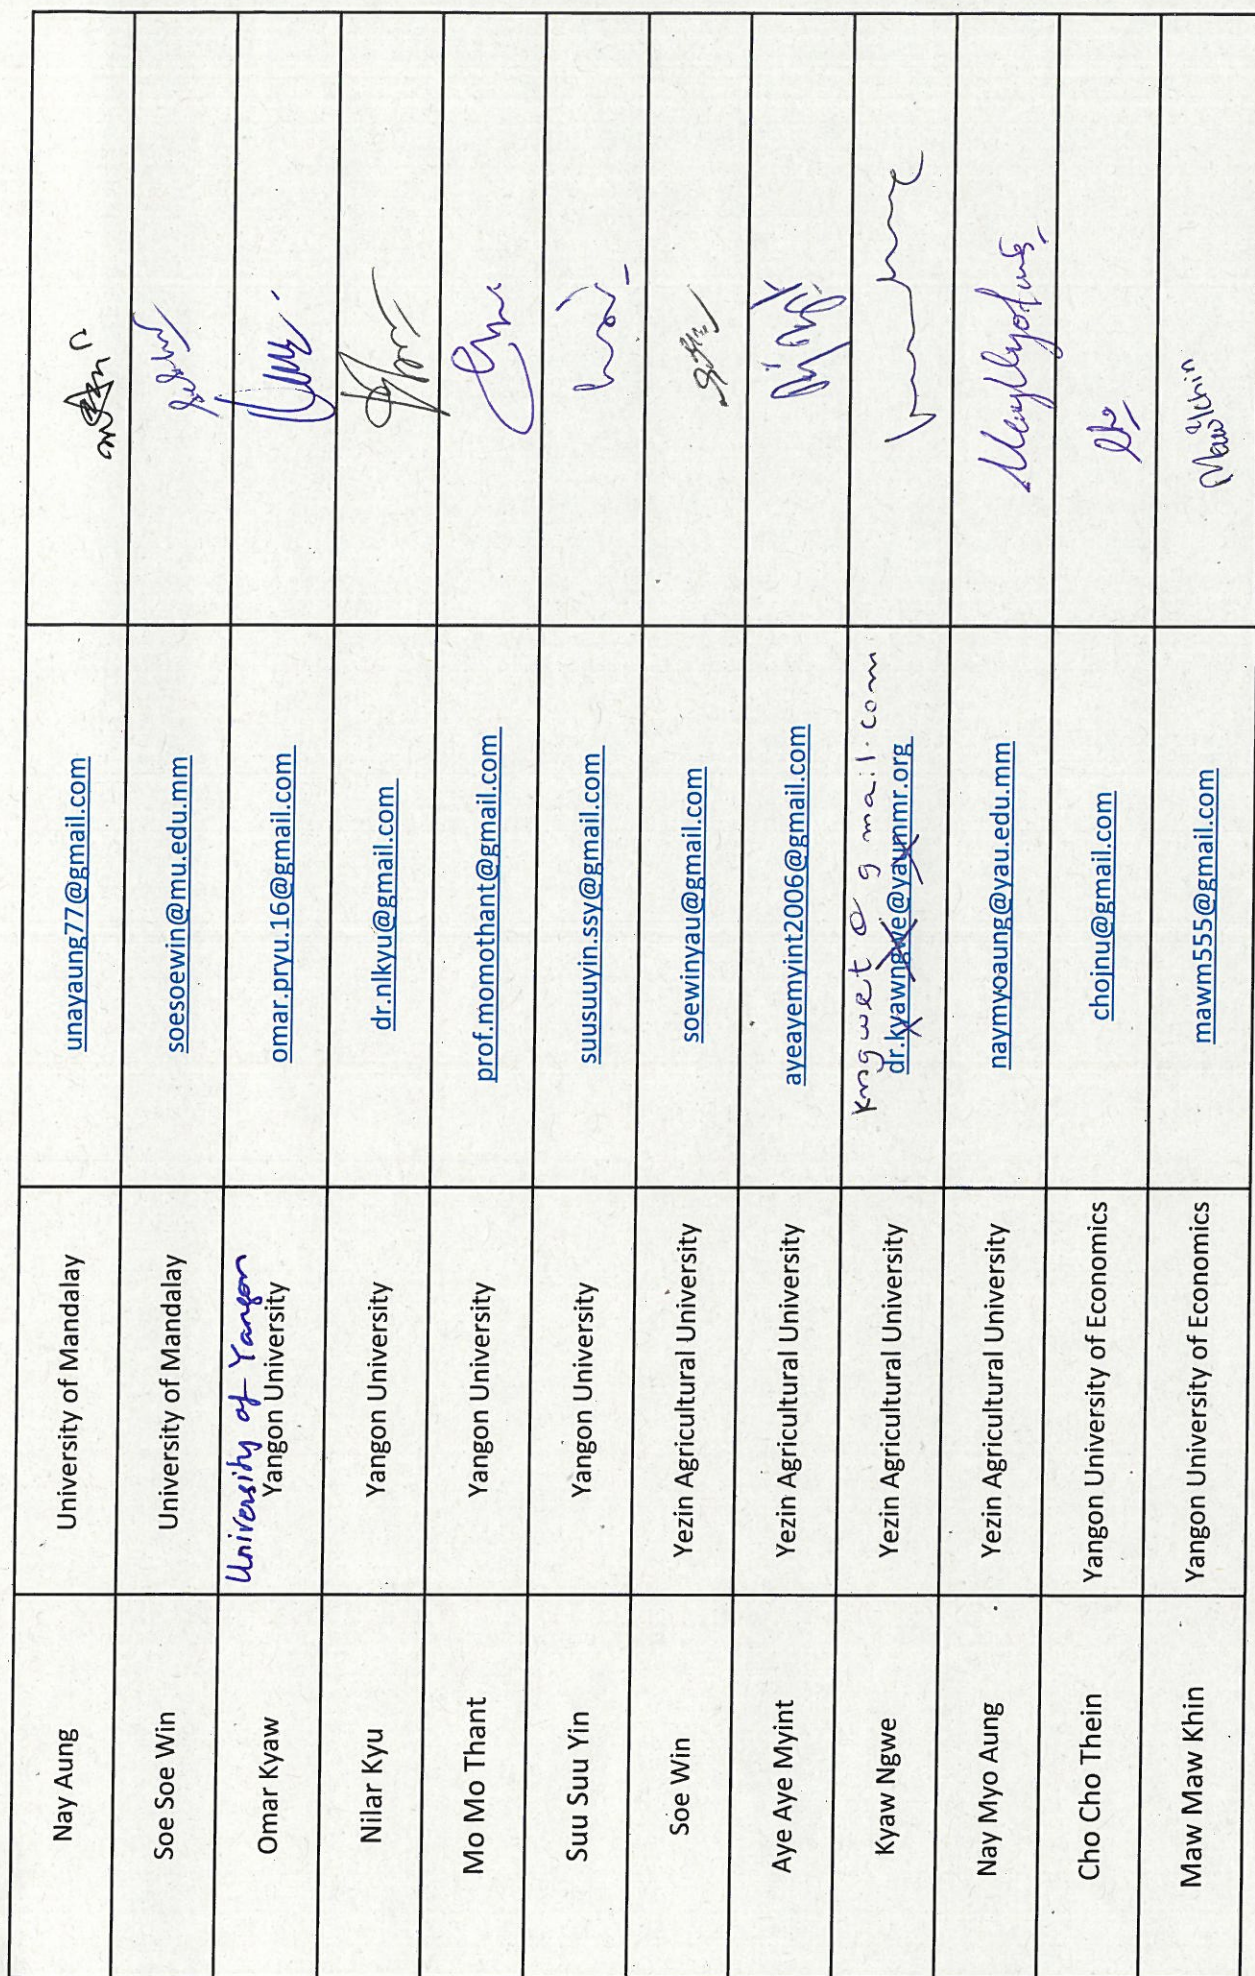 Nay Aung University of Mandalay unayaung77@gmail.com
Soe Soe Win University of Mandalay soesoewin@mu.edu.mm
University of Yangon
Omar Kyaw Yangon University omar.pryu.16@gmail.com
Nilar Kyu Yangon University dr.nlkyu@gmail.com
Mo Mo Thant Yangon University prof.momothant@gmail.com
Suu Suu Yin Yangon University suusuuyin.ssy@gmail.com
Soe Win Yezin Agricultural University soewinyau@gmail.com
Aye Aye Myint Yezin Agricultural University ayeayemyint2006@gmail.com
kngwet@gmail.com
Kyaw Ngwe Yezin Agricultural University dr.kyawngwe@yaummr.org
Nay Myo Aung Yezin Agricultural University naymyoaung@yau.edu.mm
Cho Cho Thein Yangon University of Economics chojnu@gmail.com
Maw Maw Khin Yangon University of Economics mawm555@gmail.com